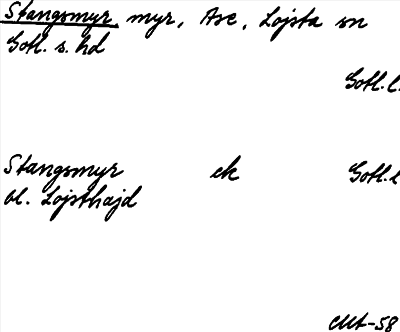 Stangsmyr myr, Ase, Lojsta sn
Gotl. s. hd
Gotl. l.
Stangsmyr ek Gotl. l
bl. Lojsthajd
-58